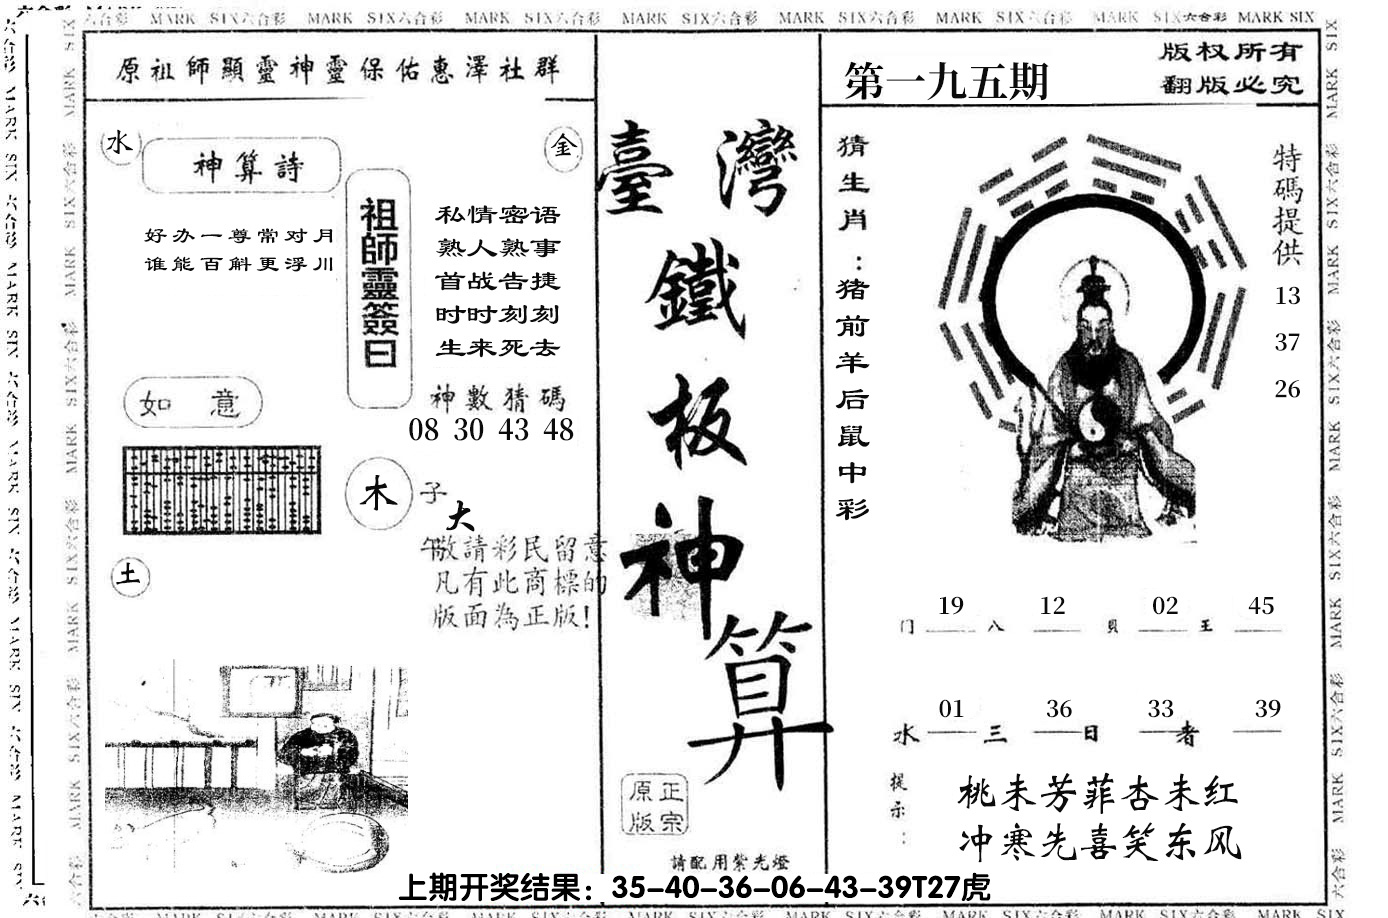 六合彩 MARK SIX六合彩 MARK SIX六合彩 MARK SIX六合彩 MARK SIX六合彩 MARK SIX六合彩 MARK SIX六合彩 MARK SIX六合彩 MARK SIX
原祖師顯靈神靈保佑惠澤社群
水
神算詩
金
好办一尊常对月
谁能百斛更浮川
祖師靈簽曰
私情密语
熟人熟事
首战告捷
时时刻刻
生来死去
神數猜碼
08 30 43 48
如意
木
子
大
午
土
敬請彩民留意
凡有此商標的
版面為正版!
臺灣
鐵
板
神
算
正宗
原版
請配用紫光燈
第一九五期
版权所有
翻版必究
猜生肖:猪前羊后鼠中彩
特碼提供
13
37
26
19 12 02 45
门 八 貝 王
01 36 33 39
水 三 日 者
提示:
桃未芳菲杏未红
冲寒先喜笑东风
上期开奖结果：35-40-36-06-43-39T27虎